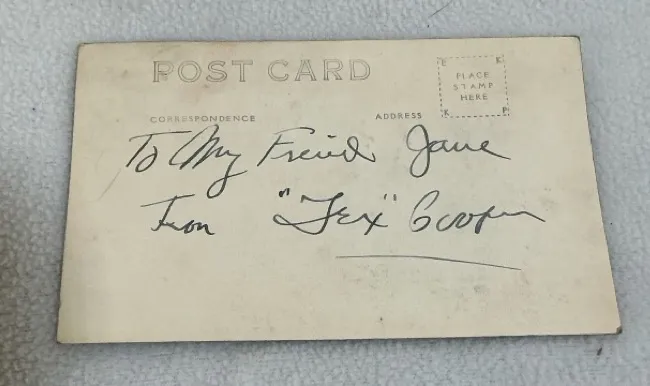 POST CARD
E K
PLACE
STAMP
HERE
K P
CORRESPONDENCE ADDRESS
To My Friend Jane
From "Tex" Cooper